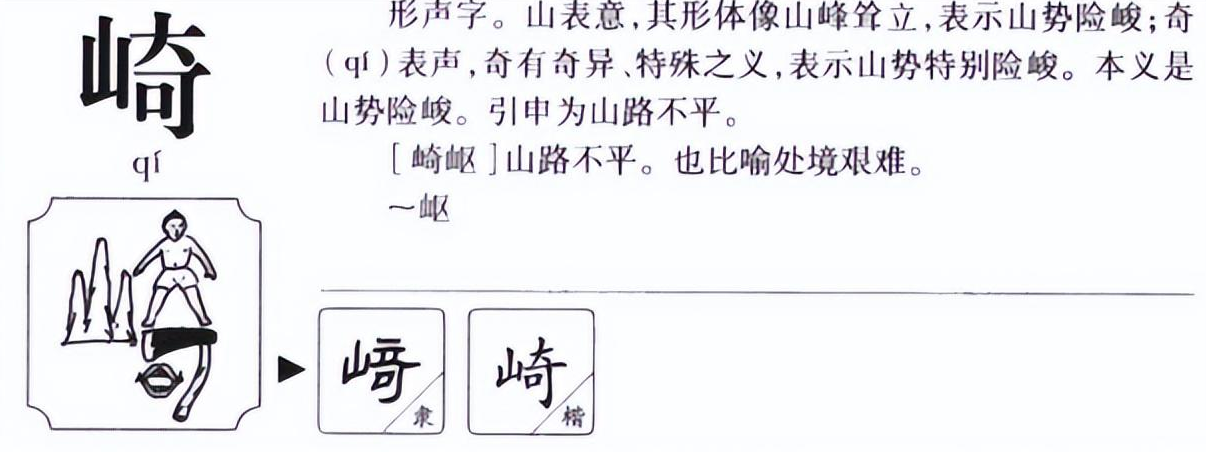 崎
qí
形声字。山表意,其形体像山峰耸立,表示山势险峻;奇
(qí)表声,奇有奇异、特殊之义,表示山势特别险峻。本义是
山势险峻。引申为山路不平。
[崎岖]山路不平。也比喻处境艰难。
～岖
崎
隶
崎
楷